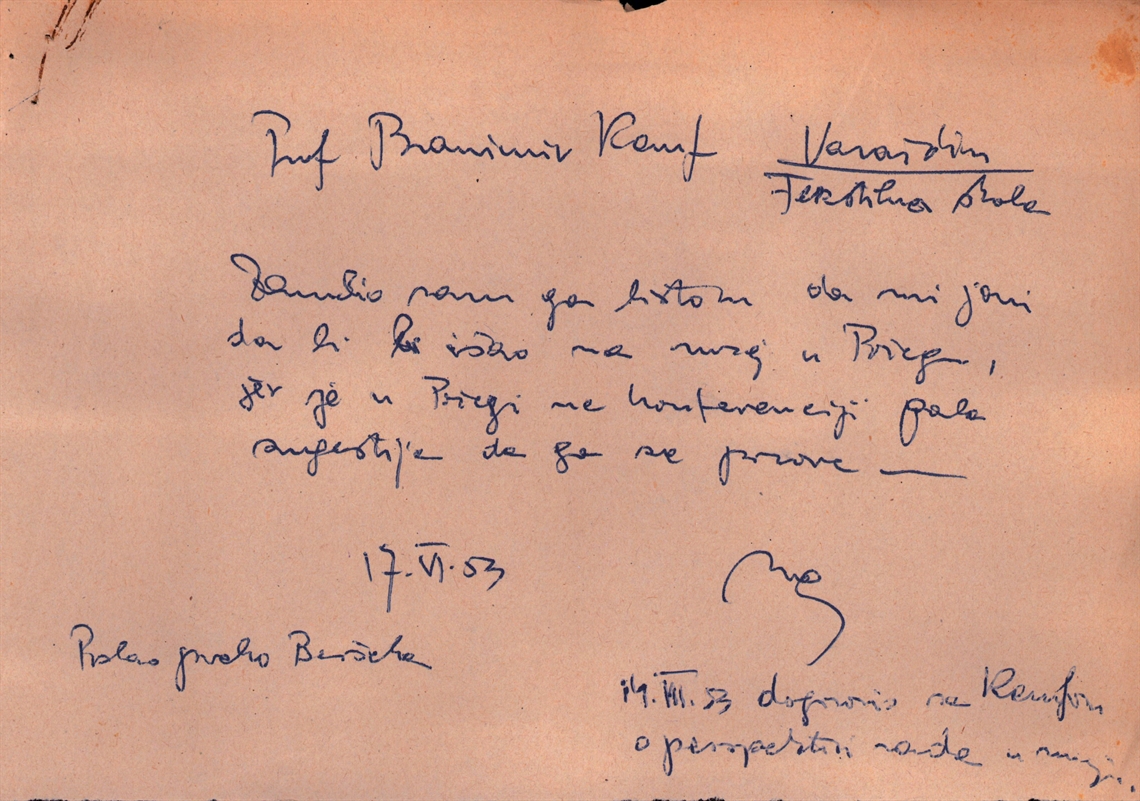 Prof Branimir Kamf Varaždin
Tekstilna škola
Zamolio sam ga listom da mi javi
da li bi išao na muzej u Požegu,
jer je u Požegi na konferenciji pala
sugestija da ga se pozove —
17.VI.53
Poslao preko
14.VIII.53 dogovorio sa Kamfom
o perspektivi rada u muzeju.